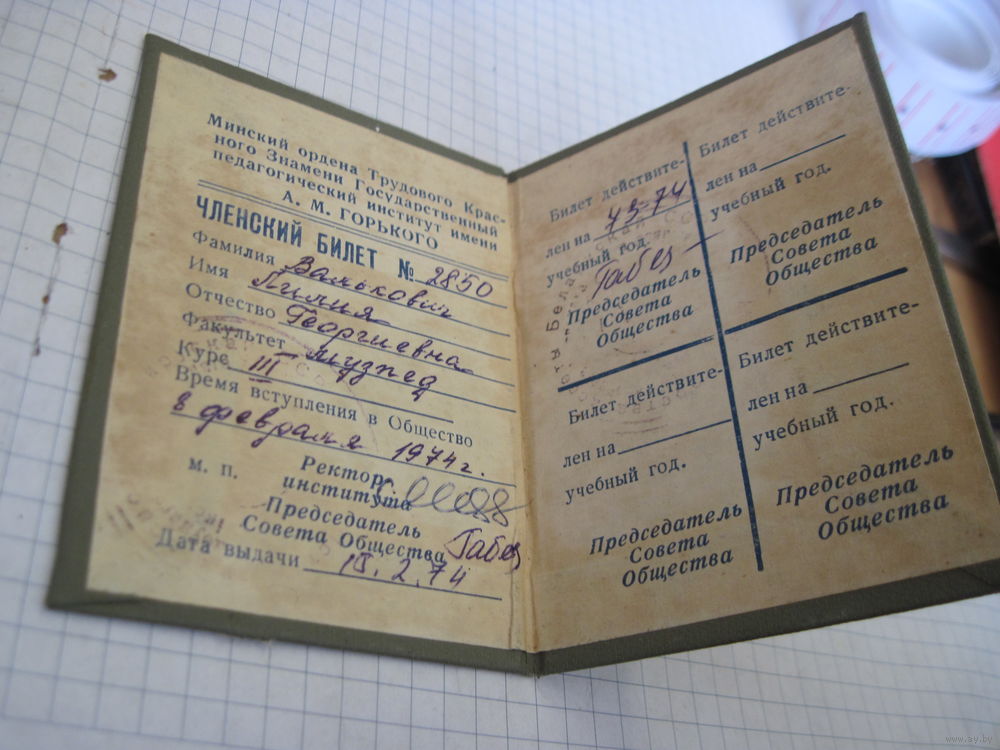 Минский ордена Трудового Крас-
ного Знамени Государственный
педагогический институт имени
А. М. ГОРЬКОГО
ЧЛЕНСКИЙ БИЛЕТ № 2850
Фамилия Валькович
Имя Лилия
Отчество Георгиевна
Факультет Музпед
Курс III
Время вступления в Общество
8 февраля 1974 г.
м. п. Ректор
института
Председатель
Совета Общества
Дата выдачи 15.2.74
Билет действите-
лен на 73-74
учебный год.
Председатель
Совета
Общества
Билет действите-
лен на
учебный год.
Председатель
Совета
Общества
Билет действите-
лен на
учебный год.
Председатель
Совета
Общества
Билет действите-
лен на
учебный год.
Председатель
Совета
Общества
www.ay.by